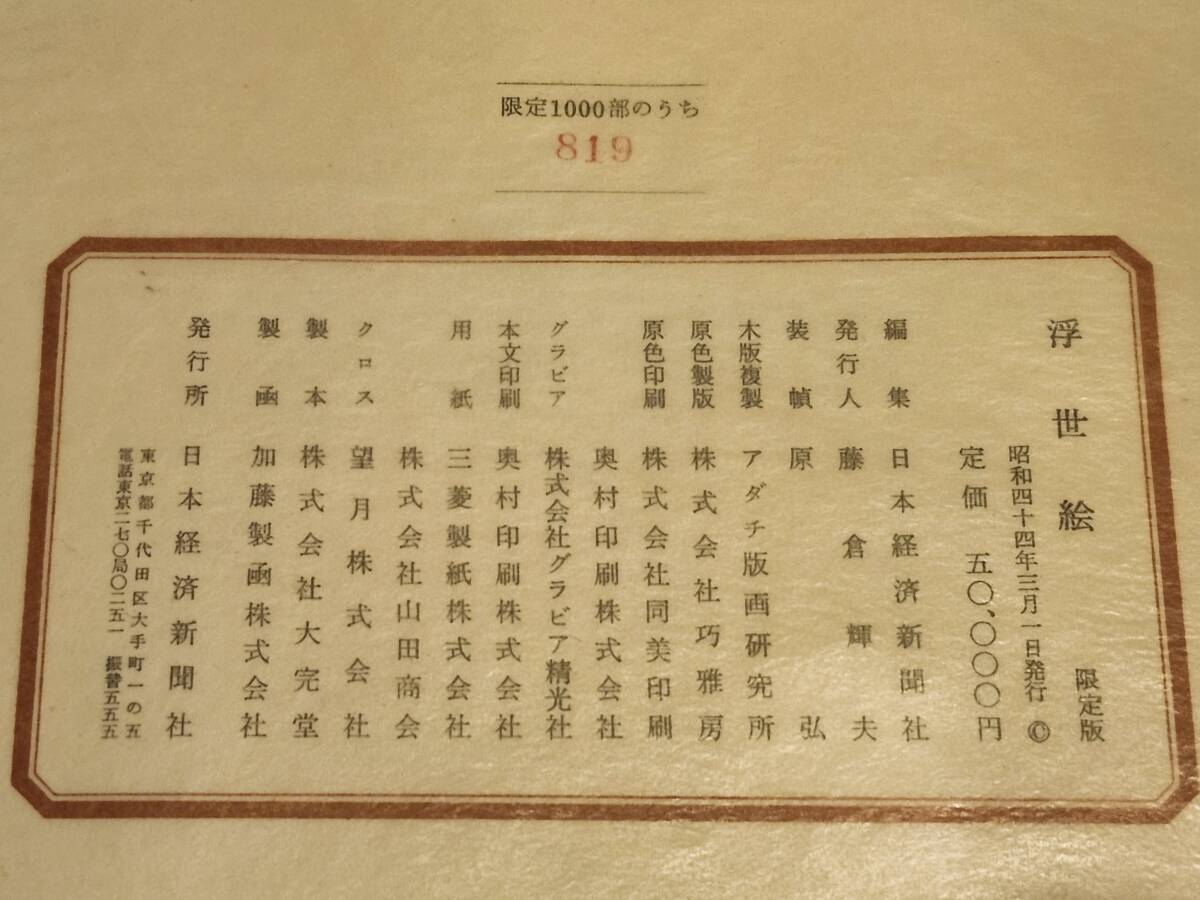 限定1000部のうち
819
浮世絵 限定版
昭和四十四年三月一日発行 ©
定価 五〇、〇〇〇円
編集 日本経済新聞社
発行人 藤倉輝夫
装幀 原弘
木版複製 アダチ版画研究所
原色製版 株式会社巧雅房
原色印刷 株式会社同美印刷
奥村印刷株式会社
グラビア 株式会社グラビア精光社
本文印刷 奥村印刷株式会社
用紙 三菱製紙株式会社
株式会社山田商会
クロス 望月株式会社
製本 株式会社大完堂
製函 加藤製函株式会社
発行所 日本経済新聞社
東京都千代田区大手町一の五
電話東京二七〇局〇二五一 振替五五五